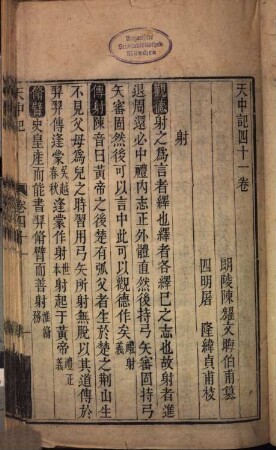 天中記四十一卷
朗陵陳耀文晦伯甫纂
四明屠隆緯貞甫校
射
觀德射之爲言者繹也繹者各繹巳之志也故射者進
退周還必中禮内志正外體直然後持弓矢審固持弓
矢審固然後可以言中此可以觀德作矣禮射義
傳射陳音曰黃帝之後楚有弧父者生於楚之荆山生
不見父母爲兒之時習用弓矢所射無脱以其道傳於
羿羿傳逢蒙吳越春秋逢蒙作射世本射起於黃帝禮正義
脩臂史皇産而能書羿脩臂而善射淮南
天中記
卷四十一